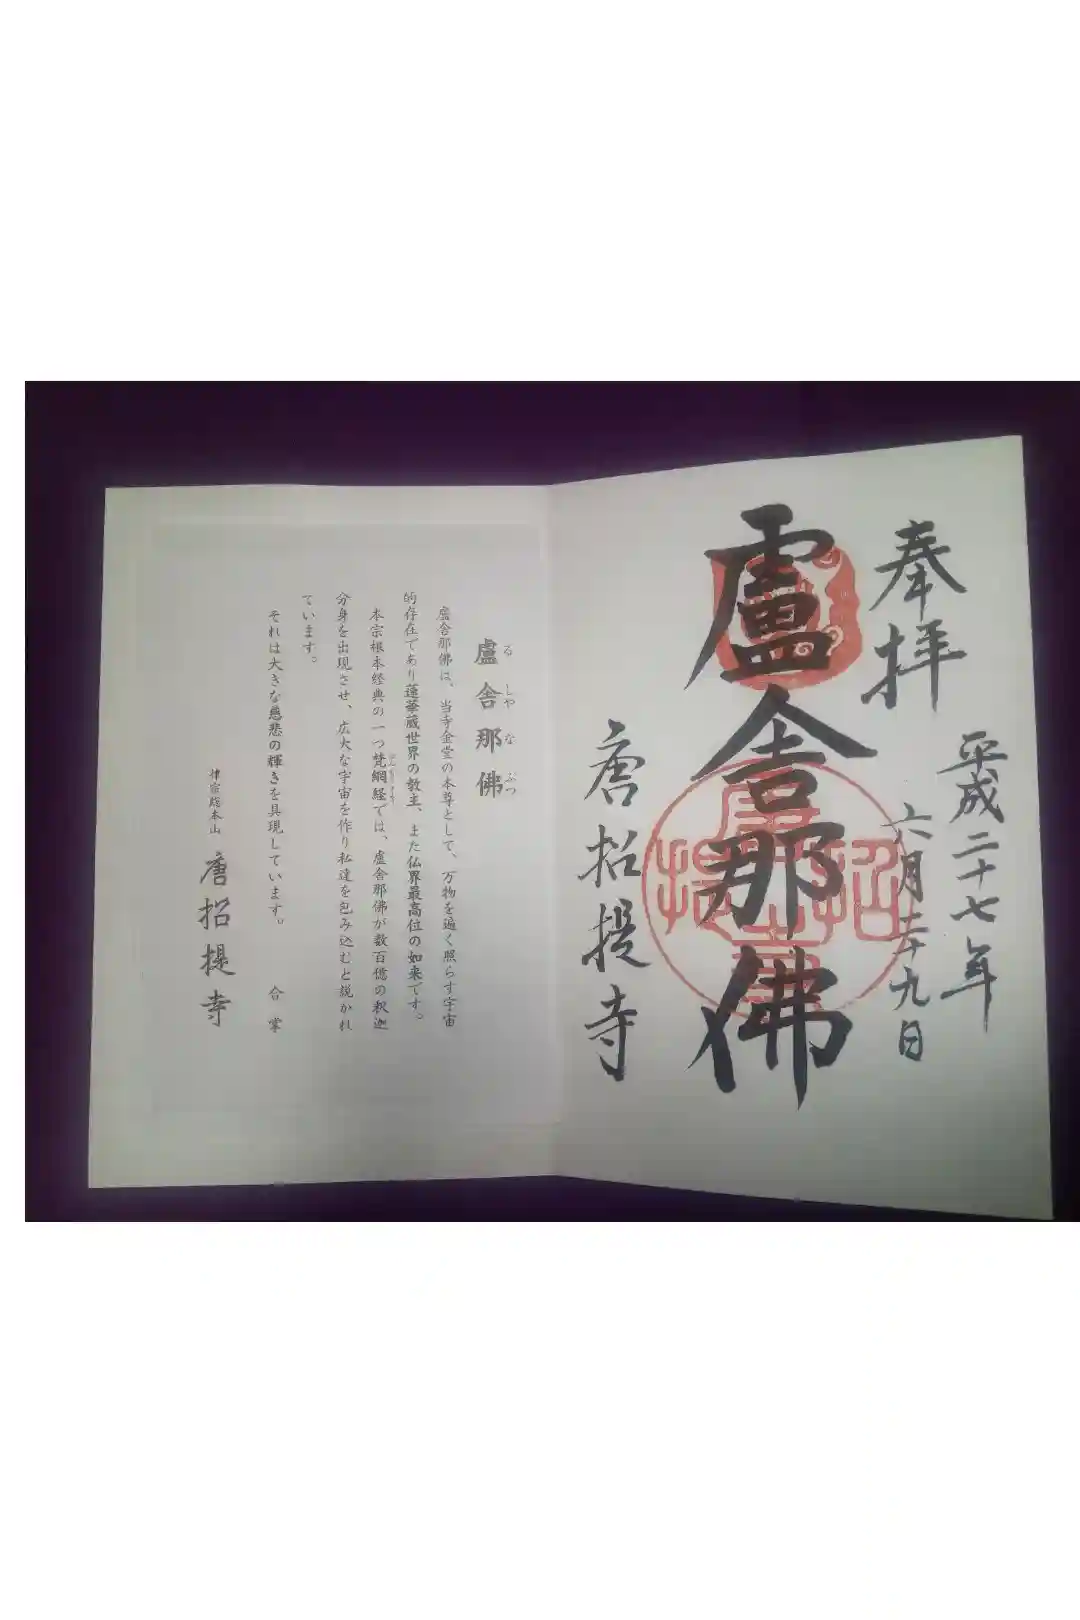 奉拝
平成二十七年
六月二十九日
盧舎那佛
唐招提寺
唐招提寺
盧舎那佛
るしやなぶつ
盧舎那佛は、当寺金堂の本尊として、万物を遍く照らす宇宙
的存在であり蓮華蔵世界の教主、また仏界最高位の如来です。
本宗根本経典の一つ梵網経では、盧舎那佛が数百億の釈迦
ぼんもうきょう
分身を出現させ、広大な宇宙を作り私達を包み込むと説かれ
ています。
それは大きな慈悲の輝きを具現しています。
合掌
律宗総本山 唐招提寺